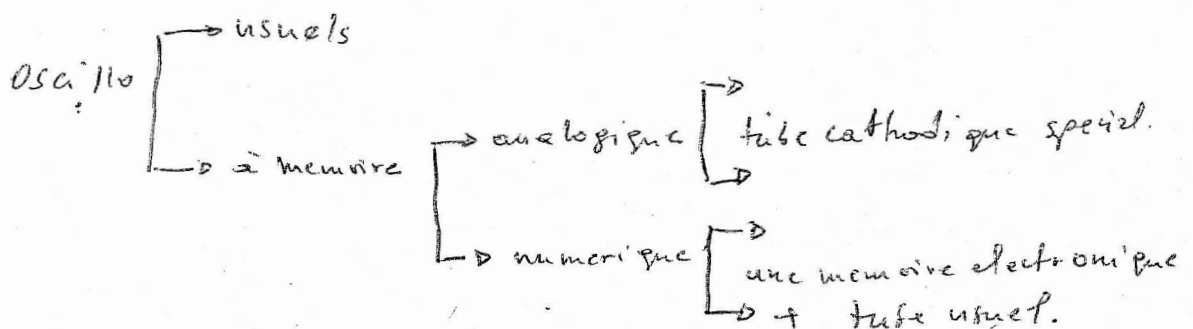 usuels
Oscillo
à memoire
analogique
tube cathodique special.
numerique
une memoire electronique
+ tube usuel.